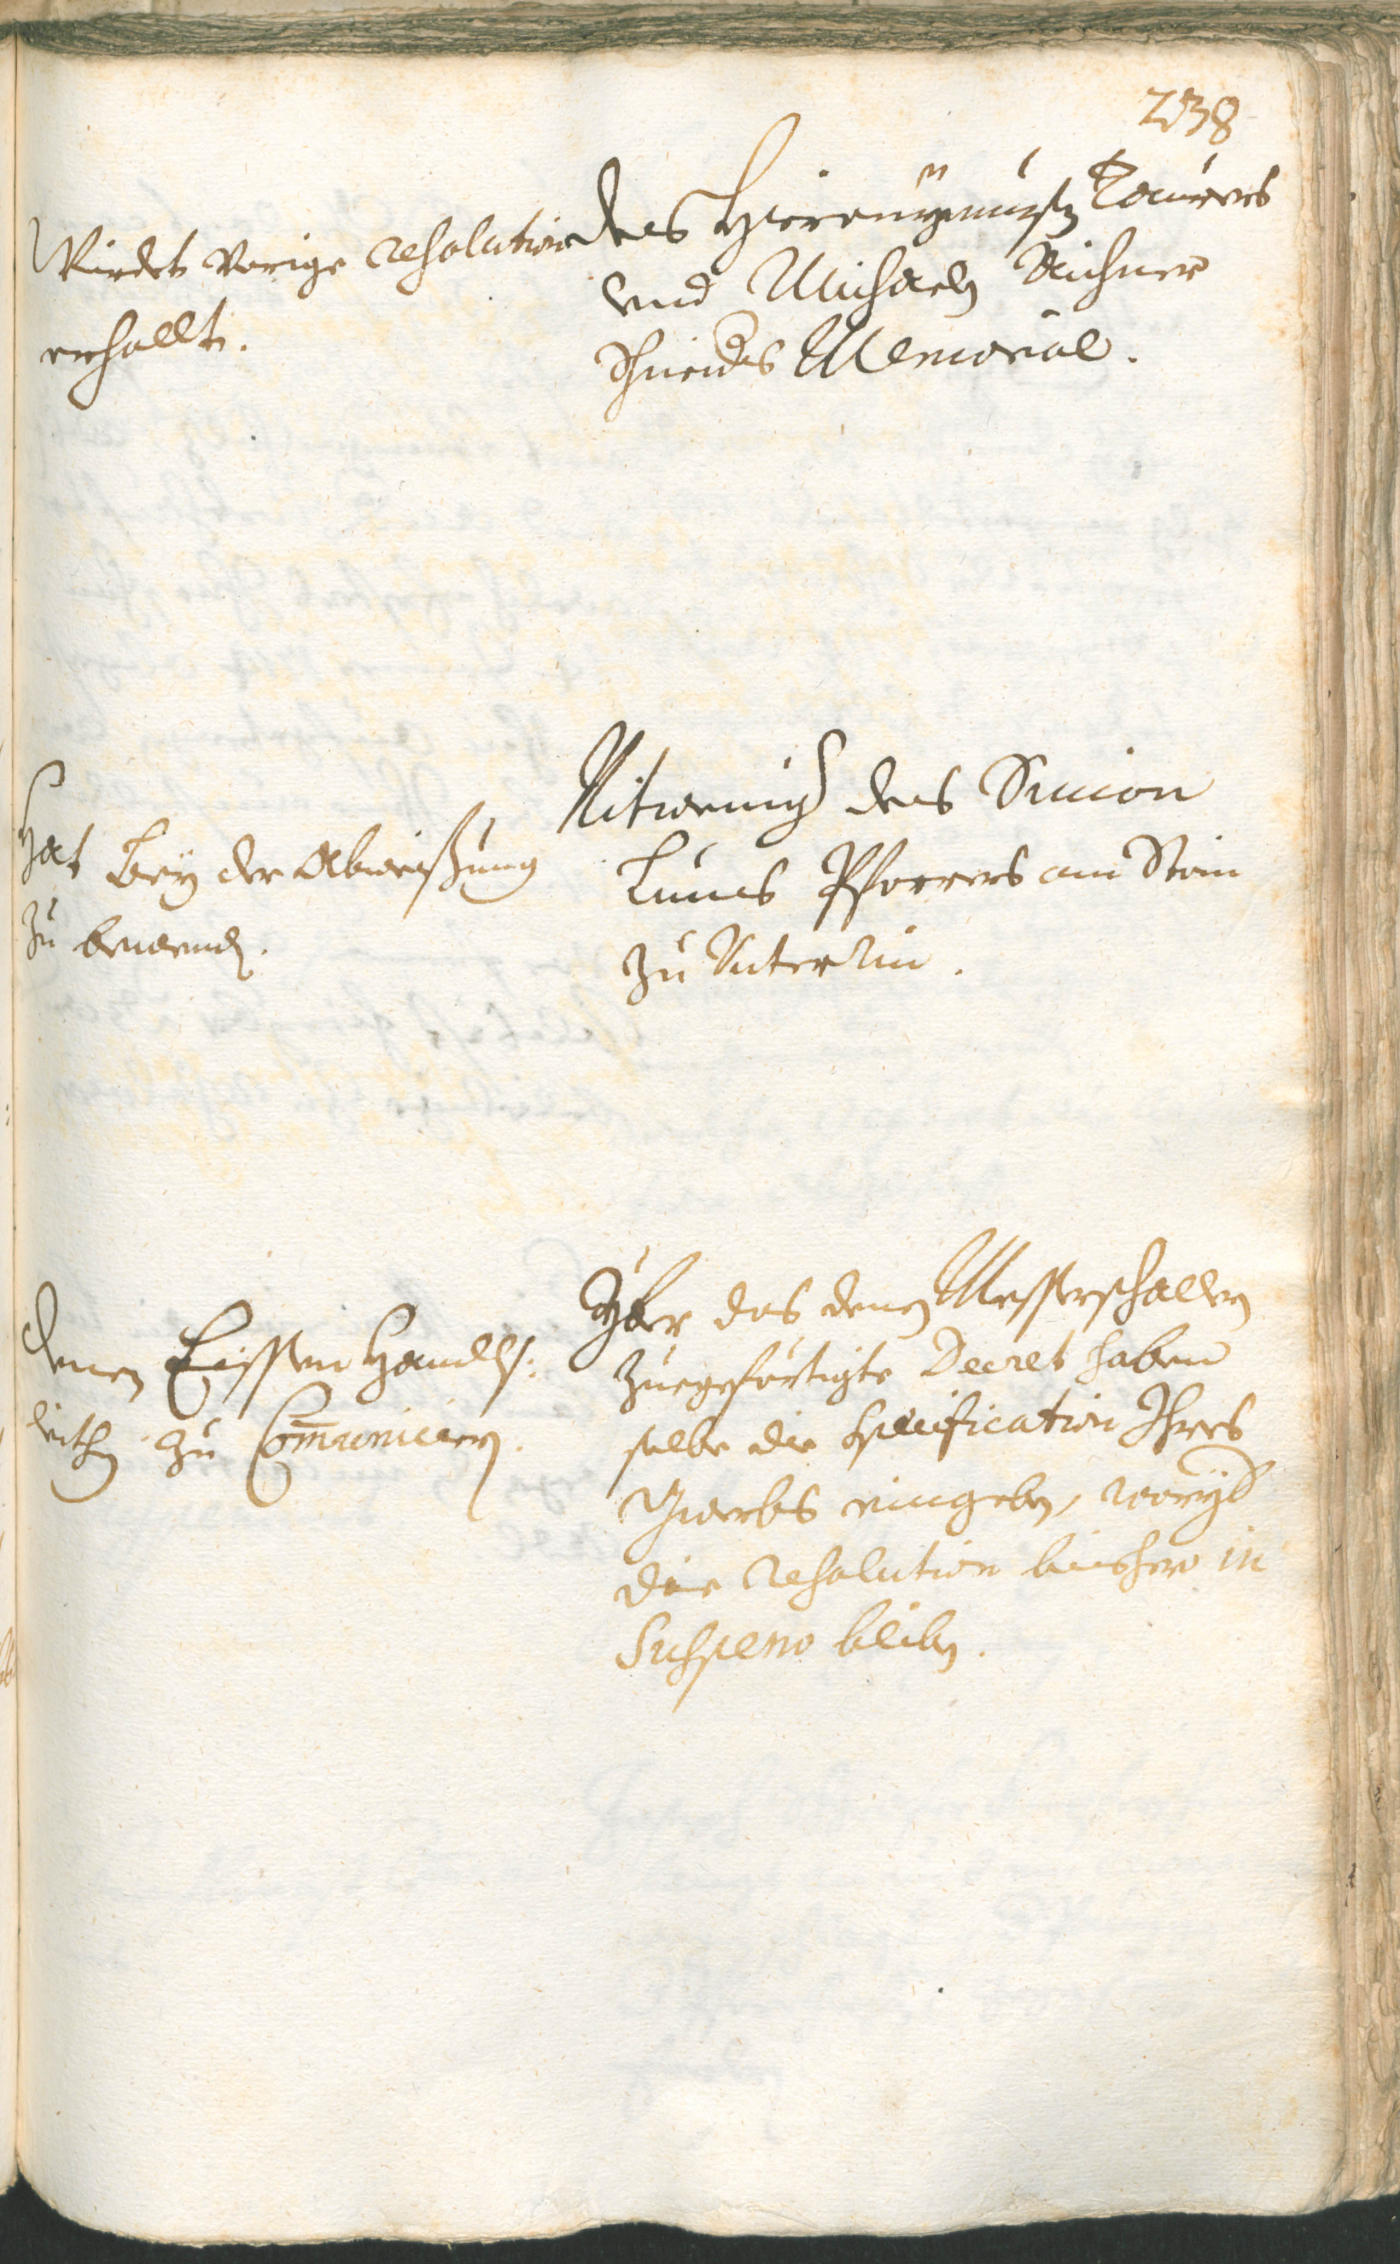 238
Würdet Vorige resolution
erhallt.
des Hieronymußn Taurers
vnd Michaeln Aichner
Schneiders Memorial.
Hat bey der Abweißung
zu bewendn.
Nitwenigr des Simion
Lunes Pfarrers am Stain
zu Unter Inn.
denen Eissen Handls:
leithn zu Com̄uniciern.
Yber das denen Messerschallern
zuegeförtigte Decret haben
selbe die specification Ihres
Gwerbs eingeben, worüber
die resolution bishero in
Suspeno bliben.